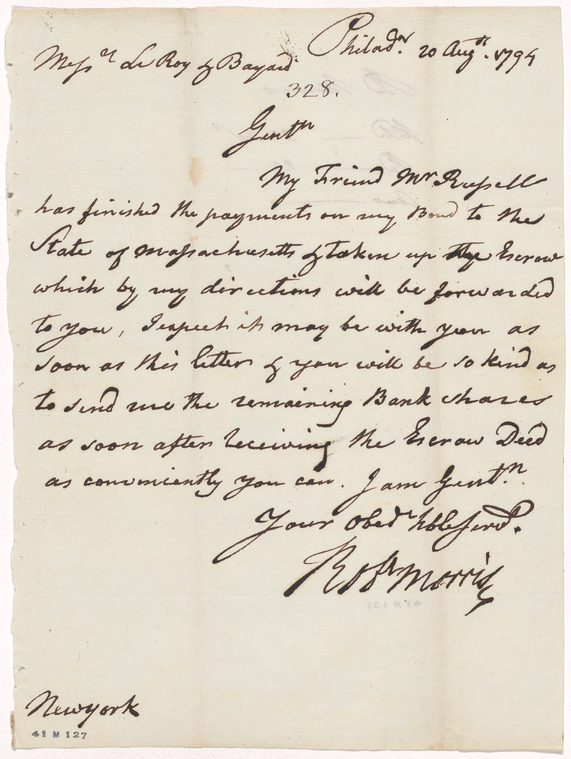 Philad.a 20 Augt. 1794
Messrs Le Roy & Bayard
328.
Gentn
My Friend Mr. Russell
has finished the payments on my Bond to the
State of Massachusetts & taken up the Escrow
which by my directions will be forwarded
to you, I expect it may be with you as
soon as this letter & you will be so kind as
to send me the remaining Bank shares
as soon after receiving the Escrow Deed
as conveniently you can. I am Gentn.
Your Obedt hble servt.
Robt Morris
Newyork
41 M 127